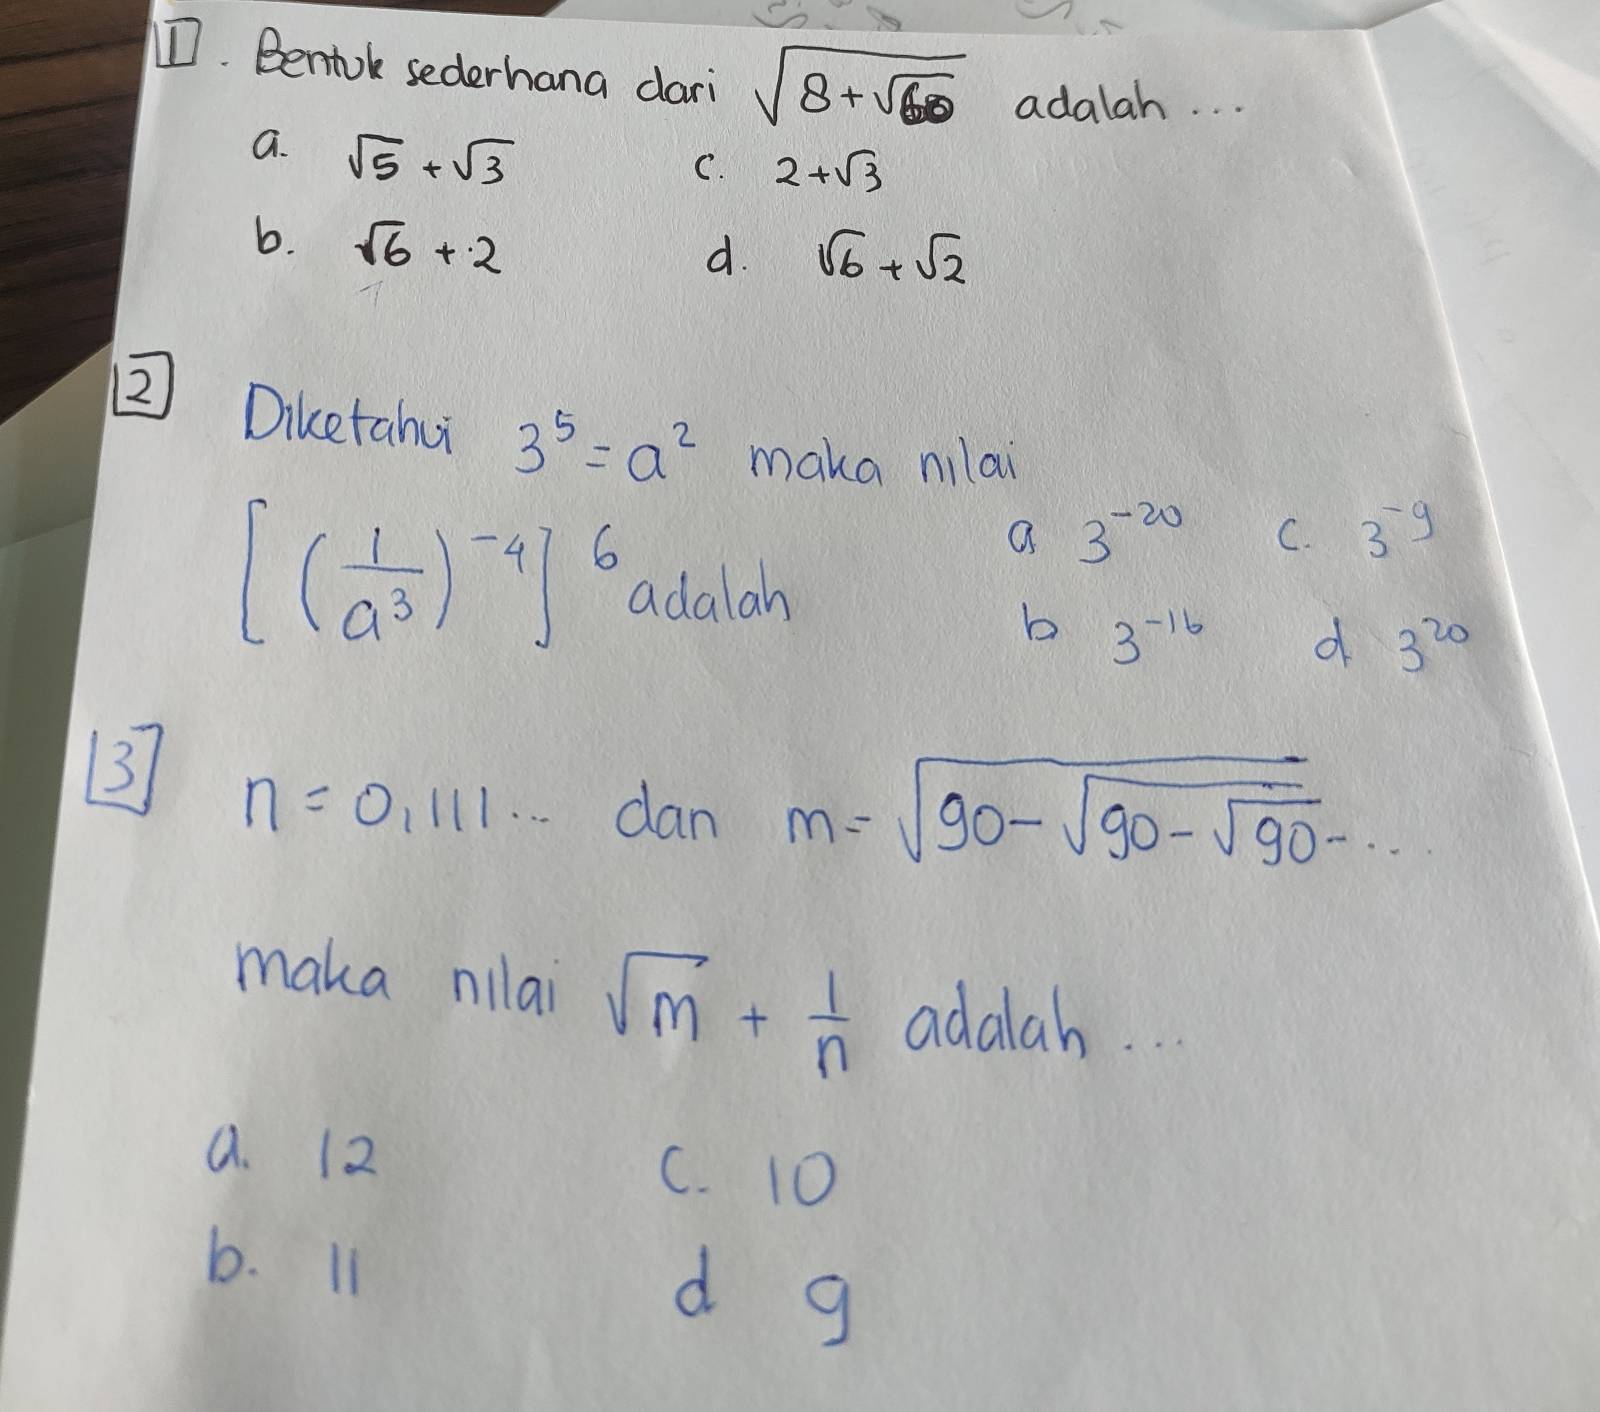 1. Bentuk sederhana dari √(8+√60) adalah ...
a. √5 + √3 c. 2+√3
b. √6 + 2 d. √6 + √2
2 Diketahui 3⁵ = a² maka nilai
[(1/a³)⁻⁴]⁶ adalah
a 3⁻²⁰ c. 3⁻⁹
b 3⁻¹⁶ d 3²⁰
3 n = 0,111... dan m = √(90-√(90-√90-...
maka nilai √m + 1/n adalah ...
a. 12 c. 10
b. 11 d 9